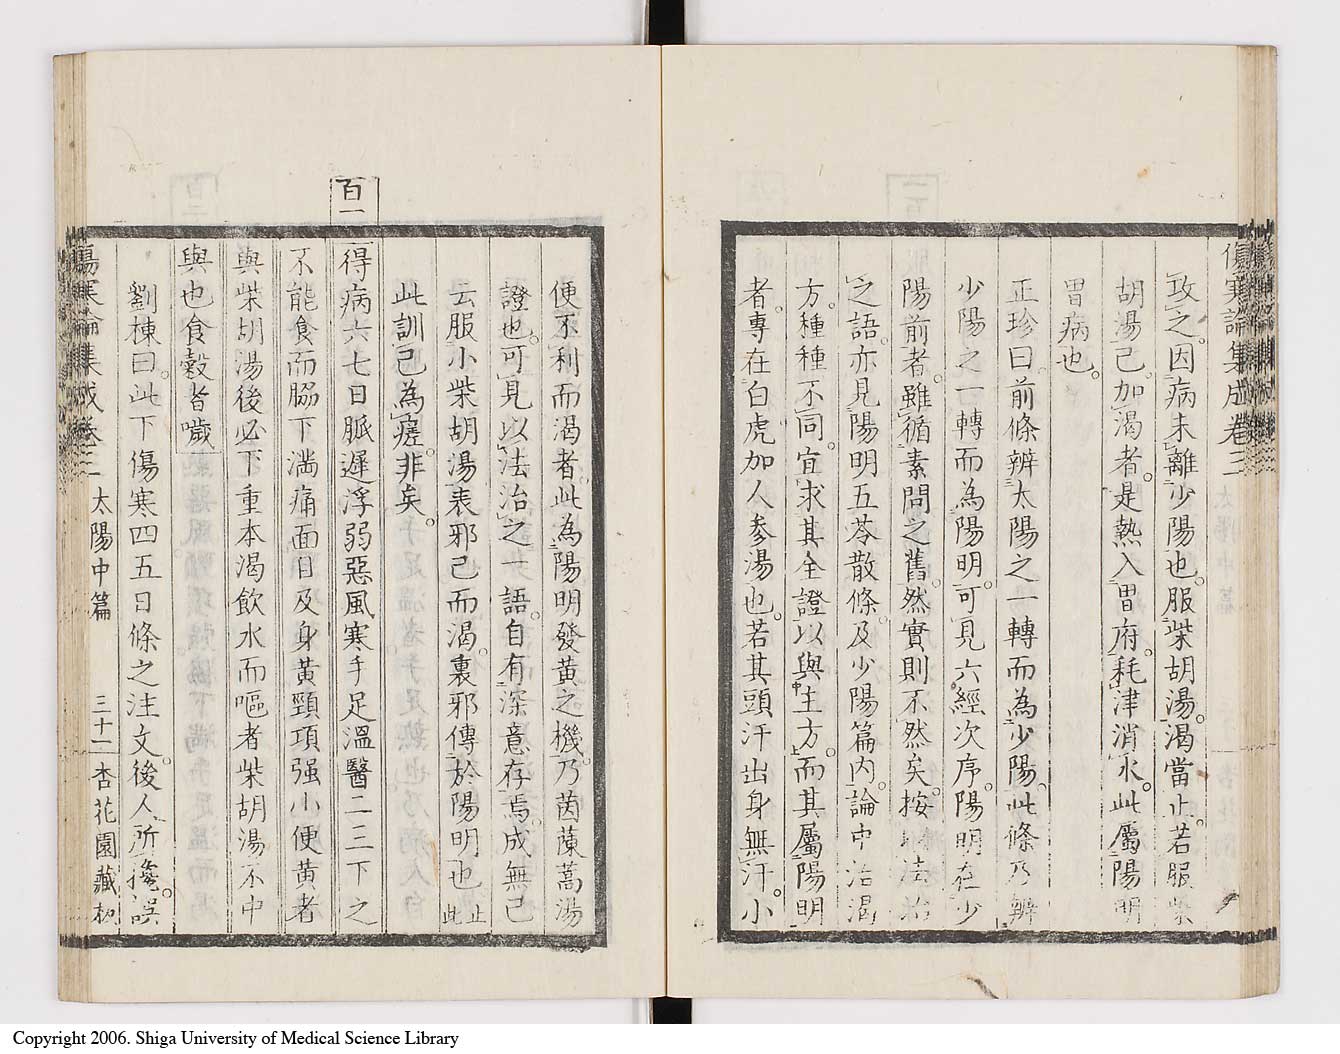 傷寒論集成卷三
攻之。因病未離少陽也。服柴胡湯。渴當止。若服柴
胡湯已。加渴者。是熱入胃府。耗津消水。此屬陽明
胃病也。
正珍曰。前條辨太陽之一轉而為少陽。此條乃辨
少陽之一轉而為陽明。可見六經次序。陽明在少
陽前者。雖循素問之舊。然實則不然矣。按
之語。亦見陽明五苓散條。及少陽篇內。論中治渴
方。種種不同。宜求其全證。以與主方。而其屬陽明
者。專在白虎加人參湯也。若其頭汗出身無汗。小
便不利而渴者。此為陽明發黃之機。乃茵蔯蒿湯
證也。可見以法治之一語。自有深意存焉。成無己
云。服小柴胡湯。表邪已而渴。裏邪傳於陽明也。止此
此訓已為瘥。非矣。
百一
得病六七日脈遲浮弱惡風寒手足溫醫二三下之
不能食而脇下滿痛面目及身黃頸項强小便黃者
與柴胡湯後必下重本渴飲水而嘔者柴胡湯不中
與也食穀者噦
劉棟曰。此下傷寒四五日條之注文。後人所攙。誤
傷寒論集成卷三 太陽中篇 三十一 杏花園藏板
Copyright 2006. Shiga University of Medical Science Library